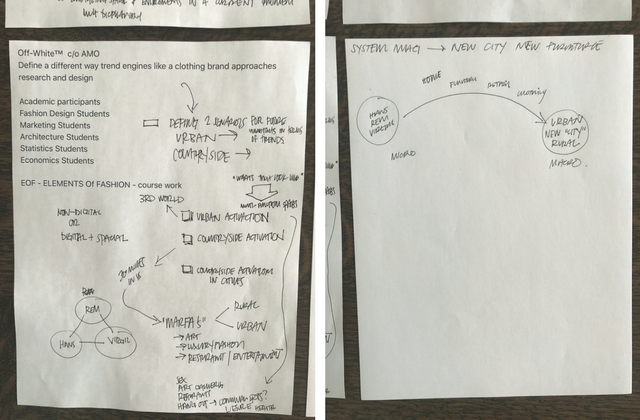 Off-White™ c/o AMO
Define a different way trend engines like a clothing brand approaches
research and design
Academic participants
Fashion Design Students
Marketing Students
Architecture Students
Statistics Students
Economics Students
DEFINING 2 SCENARIOS FOR FUTURE
URBAN →
OF TRENDS
COUNTRYSIDE →
EOF - ELEMENTS OF FASHION - course work
"WHAT'S THAT LOOK LIKE"
3RD WORLD
NON-DIGITAL
OR
DIGITAL + SPATIAL
URBAN ACTIVATION
COUNTRYSIDE ACTIVATION
COUNTRYSIDE ACTIVATION
IN CITIES
REM
HANS
VIRGIL
"MARFAS"
RURAL
URBAN
→ ART
→ LUXURY/FASHION
→ RESTAURANT / ENTERTAINMENT
RESTAURANT
HANG OUT →
SYSTEM MAG → NEW CITY NEW FURNITURE
HOME
HANS
REM
VIRGIL
MICRO
URBAN
NEW "CITY"
RURAL
MACRO.